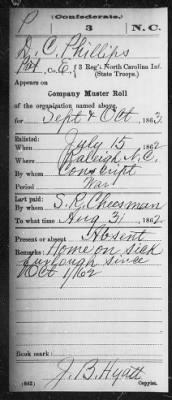 P
(Confederate.)
3 N.C.
D. C. Phillips
Pvt, Co. E, 3 Reg't. North Carolina Inf.
(State Troops.)
Appears on
Company Muster Roll
of the organization named above
for Sept & Oct, 1863.
Enlisted:
When July 15, 1862
Where Raleigh N.C.
By whom Conscript
Period War
Last paid:
By whom S. R. Cheesman
To what time Aug 31, 1862
Present or absent Absent
Remarks: Home on sick
furlough since
Oct 1/62
Book mark:
J. B. Hyatt
(642) Copyist.